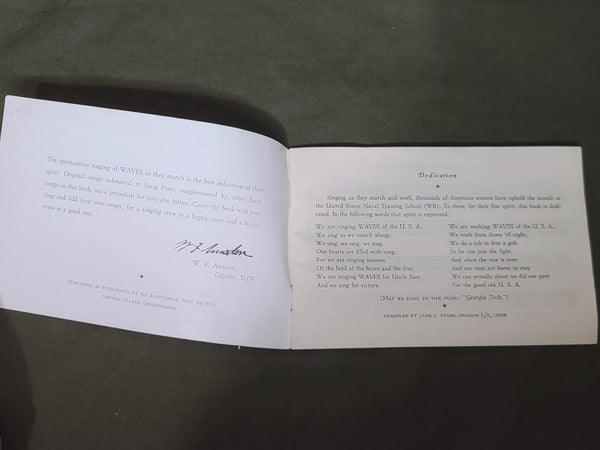 The spontaneous singing of WAVES as they march is the best indication of their
spirit. Original songs submitted at Song Fests, supplemented by other Navy
songs in this book, set a precedent for you who follow. Carry the book with you;
sing and add your own songs; for a singing crew is a happy crew and a happy
crew is a good one.
W. F. Amsden
W. F. Amsden,
Captain, USN
THIS BOOK IS PUBLISHED AT NO ADDITIONAL COST TO THE
UNITED STATES GOVERNMENT
Dedication
Singing as they march and work, thousands of American women have upheld the morale at
the United States Naval Training School (WR). To them, for their fine spirit, this book is dedi-
cated. In the following words that spirit is expressed.
We are singing WAVES of the U. S. A.,
We sing as we march along;
We sing, we sing, we sing,
Our hearts are filled with song;
For we are singing seamen
Of the land of the brave and the free,
We are singing WAVES for Uncle Sam
And we sing for victory.
We are working WAVES of the U. S. A.,
We work from dawn 'til night;
We do a job to free a gob
So he can join the fight.
And when the war is over
And our men are home to stay
We can proudly shout we did our part
For the good old U. S. A.
(May be sung to the tune: "Georgia Tech.")
COMPILED BY JANE L. EVANS, SEAMAN 1/c, USNR